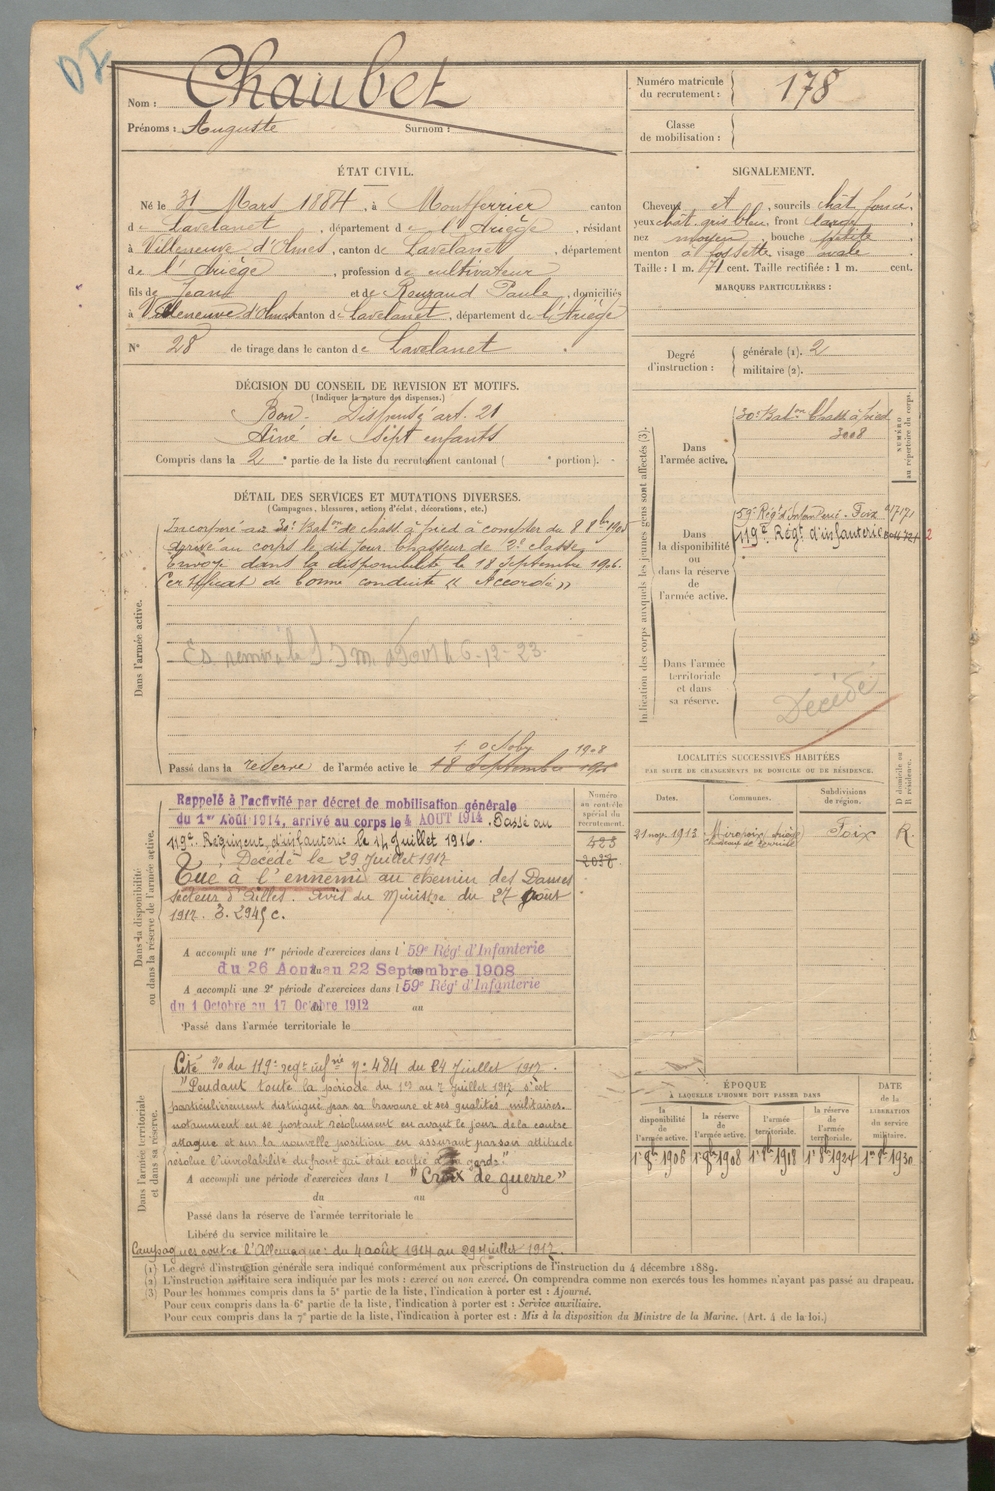 Nom : Chaubet
Prénoms : Auguste Surnom :
Numéro matricule du recrutement : 178
Classe de mobilisation :
ÉTAT CIVIL.
Né le 31 Mars 1884, à Montferrier canton
de Lavelanet, département de l'Ariège, résidant
à Villeneuve d'Olmes, canton de Lavelanet, département
de l'Ariège, profession de cultivateur
fils de Jean et de Rouzaud Paule, domiciliés
à Villeneuve d'Olmes canton de Lavelanet, département de l'Ariège
N° 28 de tirage dans le canton de Lavelanet
SIGNALEMENT.
Cheveux et, sourcils chât. foncé,
yeux chât. gris bleu, front large,
nez moyen, bouche petite,
menton à fossette, visage ovale
Taille : 1 m. 71 cent. Taille rectifiée : 1 m. cent.
MARQUES PARTICULIÈRES :
Degré d'instruction : générale (1). 2
militaire (2).
DÉCISION DU CONSEIL DE REVISION ET MOTIFS.
(Indiquer la nature des dispenses.)
Bon. Dispensé art. 21
Aîné de sept enfants
Compris dans la 2e partie de la liste du recrutement cantonal ( e portion).
DÉTAIL DES SERVICES ET MUTATIONS DIVERSES.
(Campagnes, blessures, actions d'éclat, décorations, etc.)
Dans l'armée active.
Incorporé au 30e Baton de chass. à pied à compter du 8 8bre 1905
arrivé au corps le dit jour. Chasseur de 2e classe,
Envoyé dans la disponibilité le 18 Septembre 1906.
Certificat de bonne conduite "Accordé"
6-12-23.
1 octobre 1908
Passé dans la réserve de l'armée active le 18 Septembre
Indication des corps auxquels les jeunes gens sont affectés (3).
NUMÉRO au répertoire du corps.
Dans l'armée active.
30e Baton Chass à pied
3008
Dans la disponibilité ou dans la réserve de l'armée active.
59e Régt d'Infanterie. Foix
119e Régt d'infanterie
Dans l'armée territoriale et dans sa réserve.
Décédé
LOCALITÉS SUCCESSIVES HABITÉES
PAR SUITE DE CHANGEMENTS DE DOMICILE OU DE RÉSIDENCE.
D domicile ou R résidence.
Dates. Communes. Subdivisions de région.
21 nov. 1913 Mirepoix Ariège Foix R.
Dans la disponibilité ou dans la réserve de l'armée active.
Numéro au contrôle spécial du recrutement.
Rappelé à l'activité par décret de mobilisation générale
du 1er Août 1914, arrivé au corps le 4 AOUT 1914. Passé au
119e Régiment d'infanterie le 14 Juillet 1916.
Décédé le 29 Juillet 1917
Tué à l'ennemi au chemin des Dames
secteur d'Ailles. Avis du Ministre du 27 août
1917.
A accompli une 1re période d'exercices dans l 59e Régt d'Infanterie
du 26 Aout au 22 Septembre 1908
A accompli une 2e période d'exercices dans l 59e Régt d'Infanterie
du 1 Octobre au 17 Octobre 1912
Passé dans l'armée territoriale le
Dans l'armée territoriale et dans sa réserve.
Cité % du 119e regt infrie n° 484 du 14 Juillet 1917.
"Pendant toute la période du 1er au 7 juillet 1917 s'est
particulièrement distingué par sa bravoure et ses qualités militaires.
notamment en se portant résolument en avant le jour de la contre
attaque et sur la nouvelle position en assurant par son attitude
résolue l'inviolabilité du front qui était confié à sa garde."
"Croix de guerre"
A accompli une période d'exercices dans l
du au
Passé dans la réserve de l'armée territoriale le
Libéré du service militaire le
Campagnes contre l'Allemagne : du 4 août 1914 au 29 Juillet 1917.
ÉPOQUE
À LAQUELLE L'HOMME DOIT PASSER DANS
la disponibilité de l'armée active. la réserve de l'armée active. l'armée territoriale. la réserve de l'armée territoriale.
DATE de la LIBÉRATION du service militaire.
1er 8bre 1906 1er 8bre 1908 1er 8bre 1918 1er 8bre 1924 1er 8bre 1930
(1) Le degré d'instruction générale sera indiqué conformément aux prescriptions de l'instruction du 4 décembre 1889.
(2) L'instruction militaire sera indiquée par les mots : exercé ou non exercé. On comprendra comme non exercés tous les hommes n'ayant pas passé au drapeau.
(3) Pour les hommes compris dans la 5e partie de la liste, l'indication à porter est : Ajourné.
Pour ceux compris dans la 6e partie de la liste, l'indication à porter est : Service auxiliaire.
Pour ceux compris dans la 7e partie de la liste, l'indication à porter est : Mis à la disposition du Ministre de la Marine. (Art. 4 de la loi.)